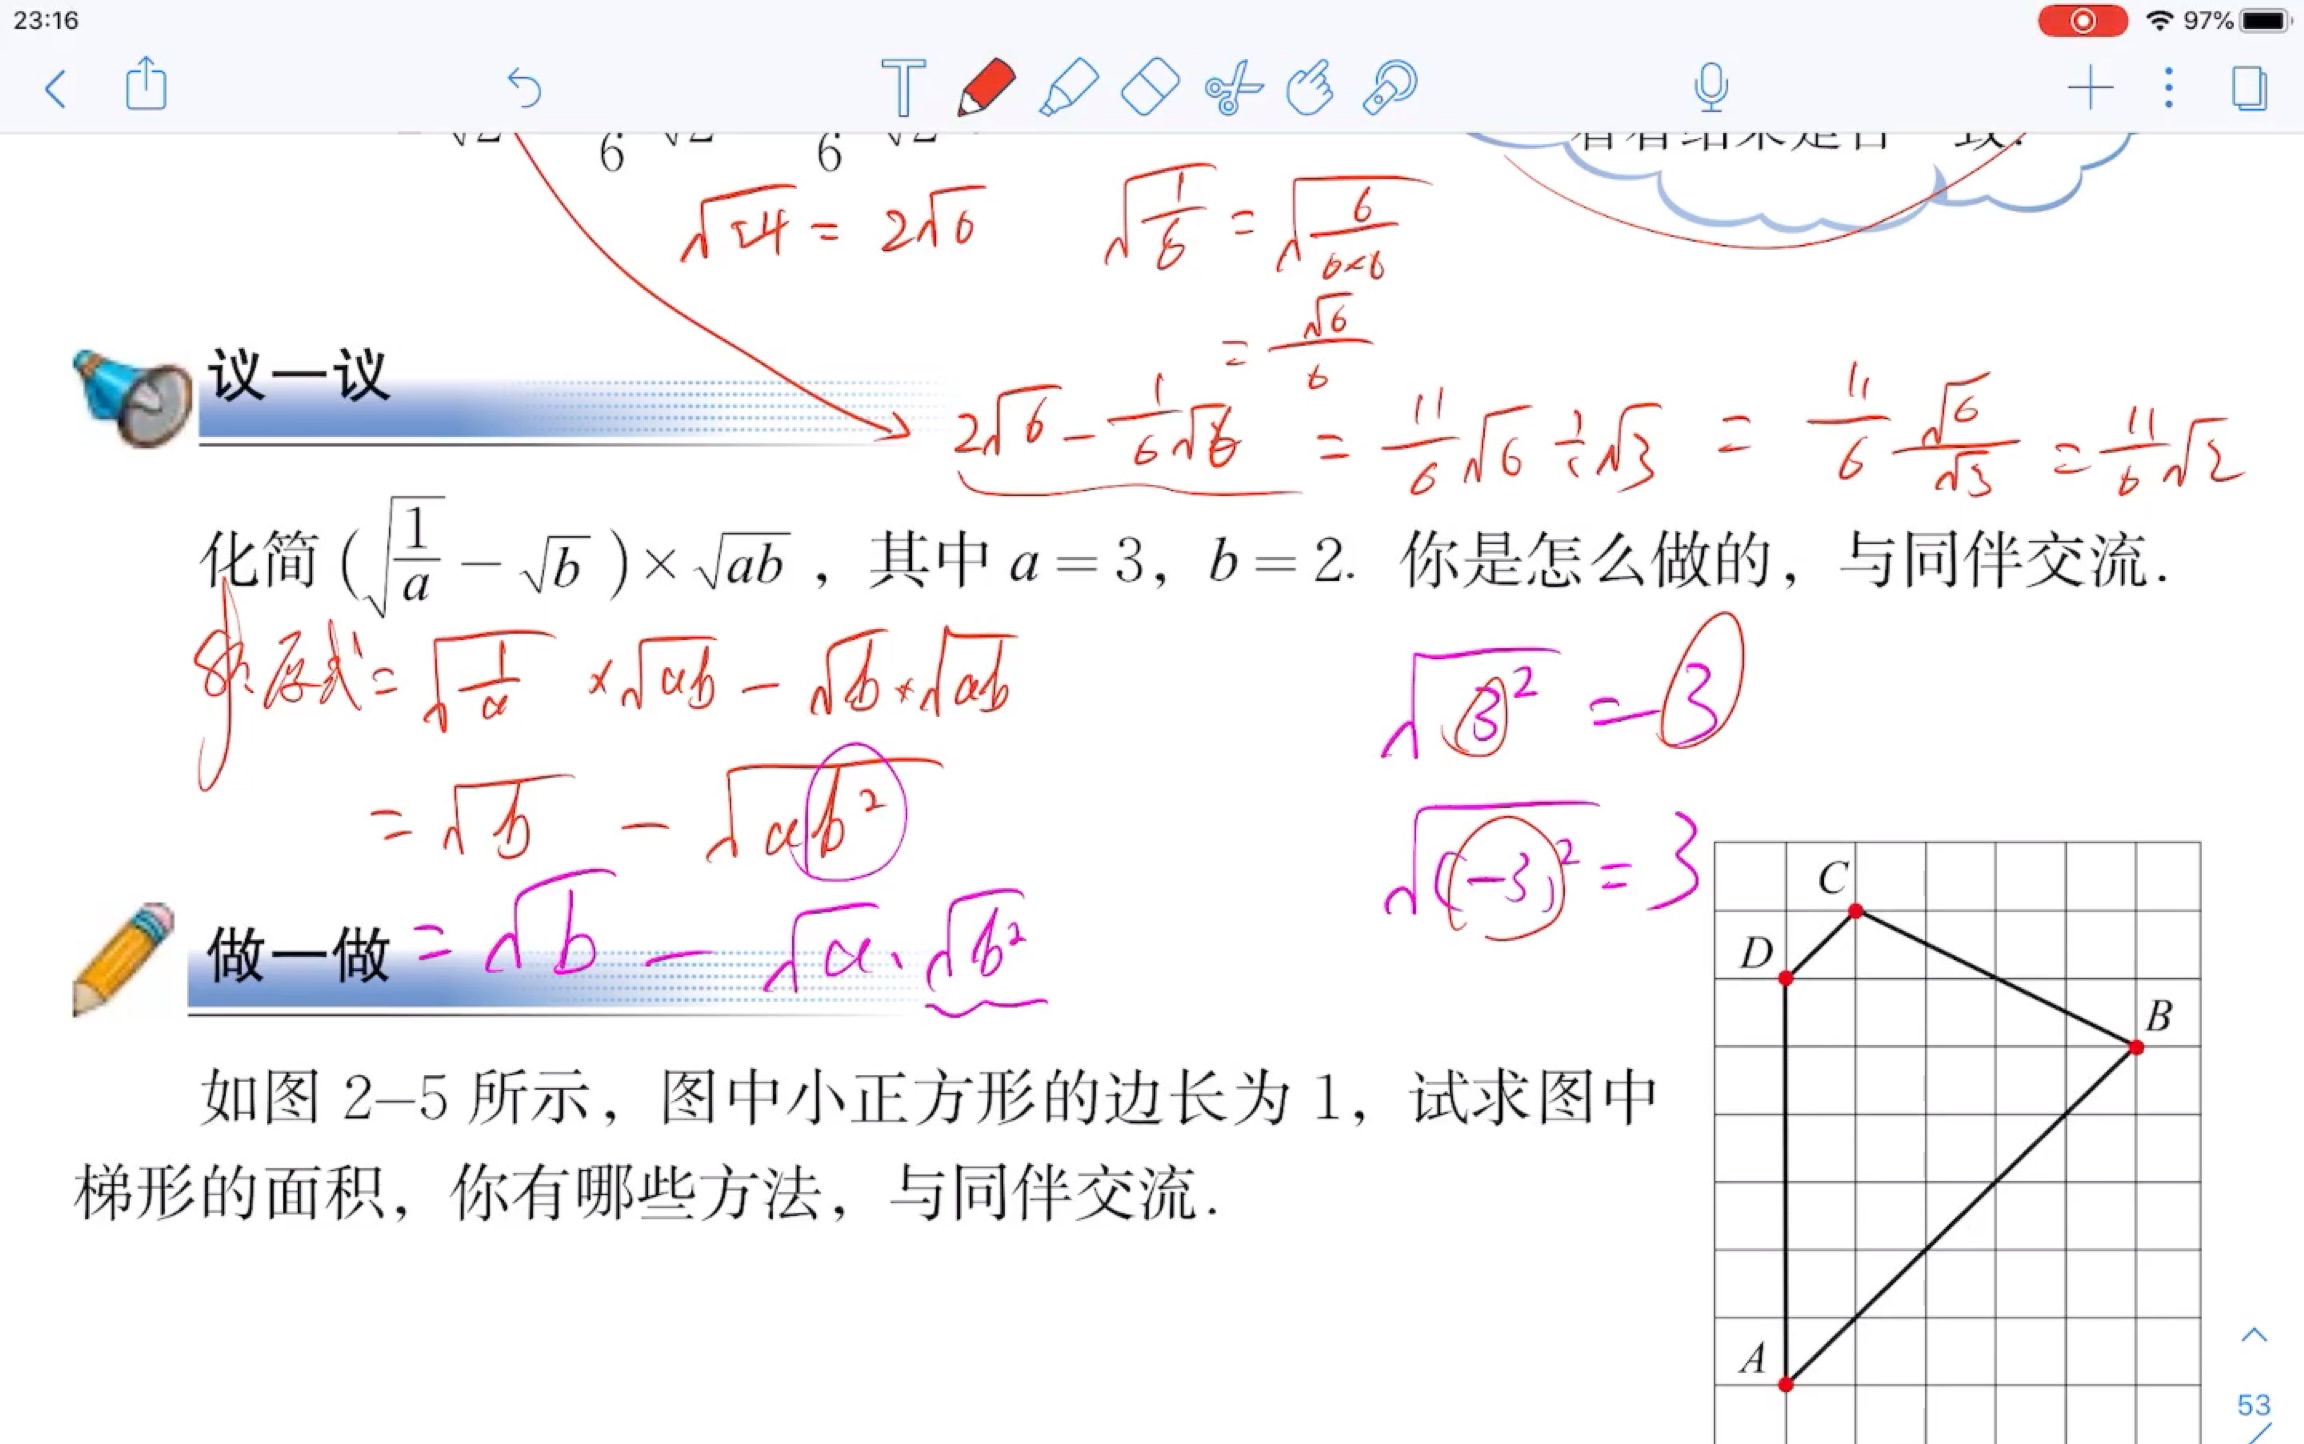 23:16
97%
T
√2 6 √2 6 √2
√24 = 2√6
√(1/6) = √(6/(6×6))
= √6/6
议一议
2√6 - 1/6√6 = 11/6√6 ÷ √3 = 11/6 √6/√3 = 11/6√2
化简 (√(1/a) - √b) × √ab，其中 a = 3，b = 2. 你是怎么做的，与同伴交流.
原式 = √(1/a) × √ab - √b × √ab
√3² = 3
= √b - √ab²
√(-3)² = 3
做一做
= √b - √a · √b²
C
D
B
如图 2-5 所示，图中小正方形的边长为 1，试求图中
梯形的面积，你有哪些方法，与同伴交流.
A
53